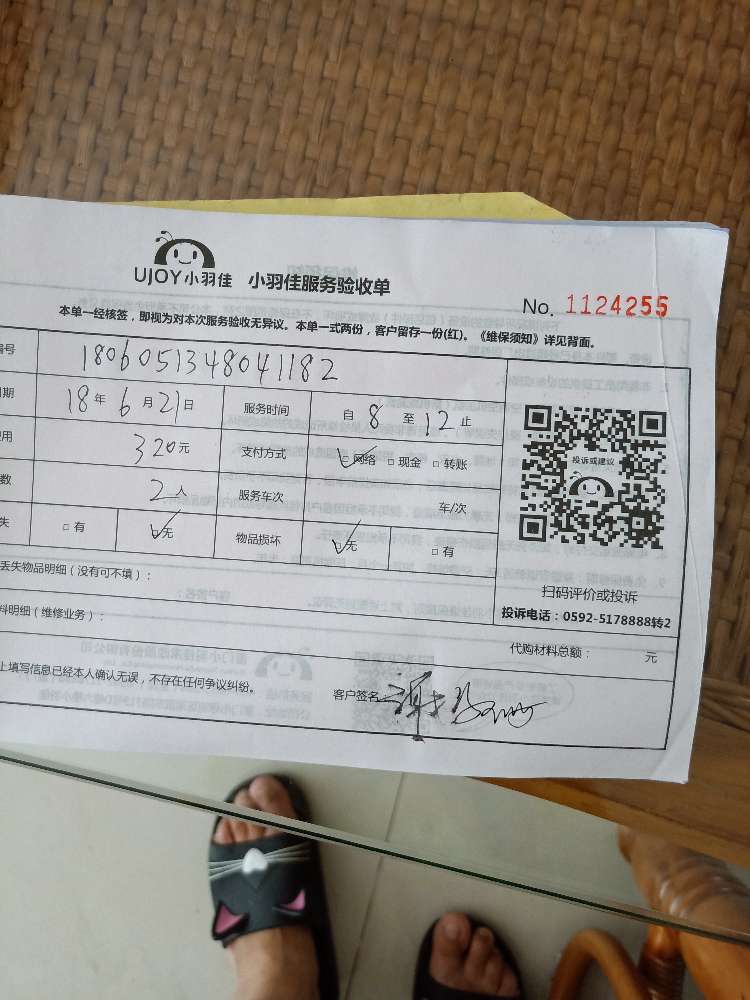 UJOY小羽佳 小羽佳服务验收单
No. 1124255
本单一经核签，即视为对本次服务验收无异议。本单一式两份，客户留存一份(红)。《维保须知》详见背面。
编号 1806051348041182
日期 18年6月21日 服务时间 自8至12止
费用 320元 支付方式 ☑网络 □现金 □转账
数 2人 服务车次 车/次
失 □有 ☑无 物品损坏 ☑无 □有
投诉或建议
丢失物品明细（没有可不填）：
扫码评价或投诉
料明细（维修业务）：
投诉电话：0592-5178888转2
代购材料总额： 元
上填写信息已经本人确认无误，不存在任何争议纠纷。
客户签名